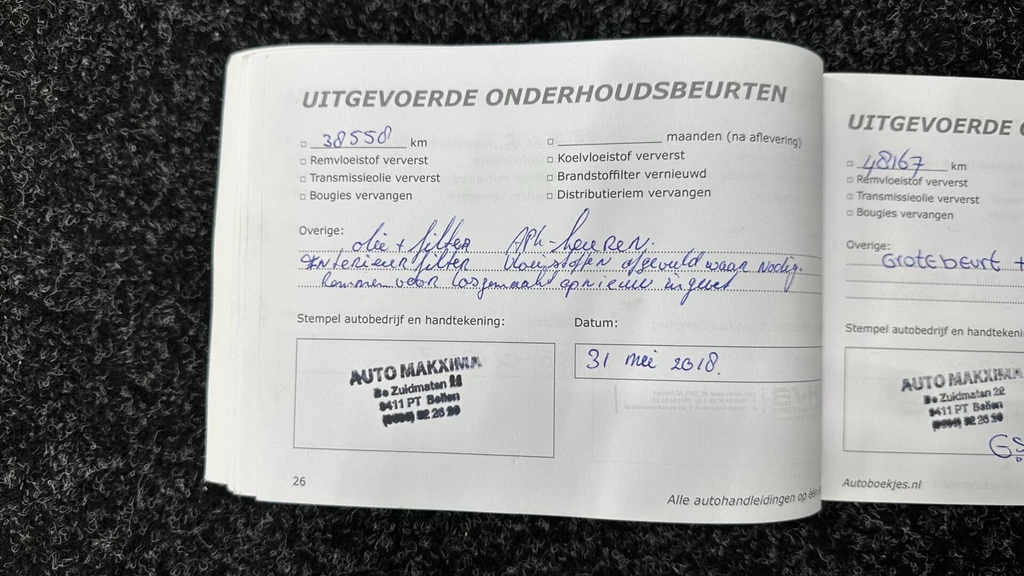 UITGEVOERDE ONDERHOUDSBEURTEN
38558 km
maanden (na aflevering)
Remvloeistof ververst
Koelvloeistof ververst
Transmissieolie ververst
Brandstoffilter vernieuwd
Bougies vervangen
Distributieriem vervangen
Overige:
olie + filter APK-keuren.
Interieurfilter Vloeistoffen afgevuld waar nodig.
Remmen voor losgemaakt opnieuw ingevet
Stempel autobedrijf en handtekening:
Datum:
AUTO MAKXIMA
De Zuidmaten 22
9411 PT Beilen
31 mei 2018.
26
Alle autohandleidingen op één
UITGEVOERDE
48167 km
Remvloeistof ververst
Transmissieolie ververst
Bougies vervangen
Overige:
Grote beurt +
Stempel autobedrijf en handtekeni
AUTO MAKXIMA
De Zuidmaten 22
9411 PT Beilen
Autoboekjes.nl